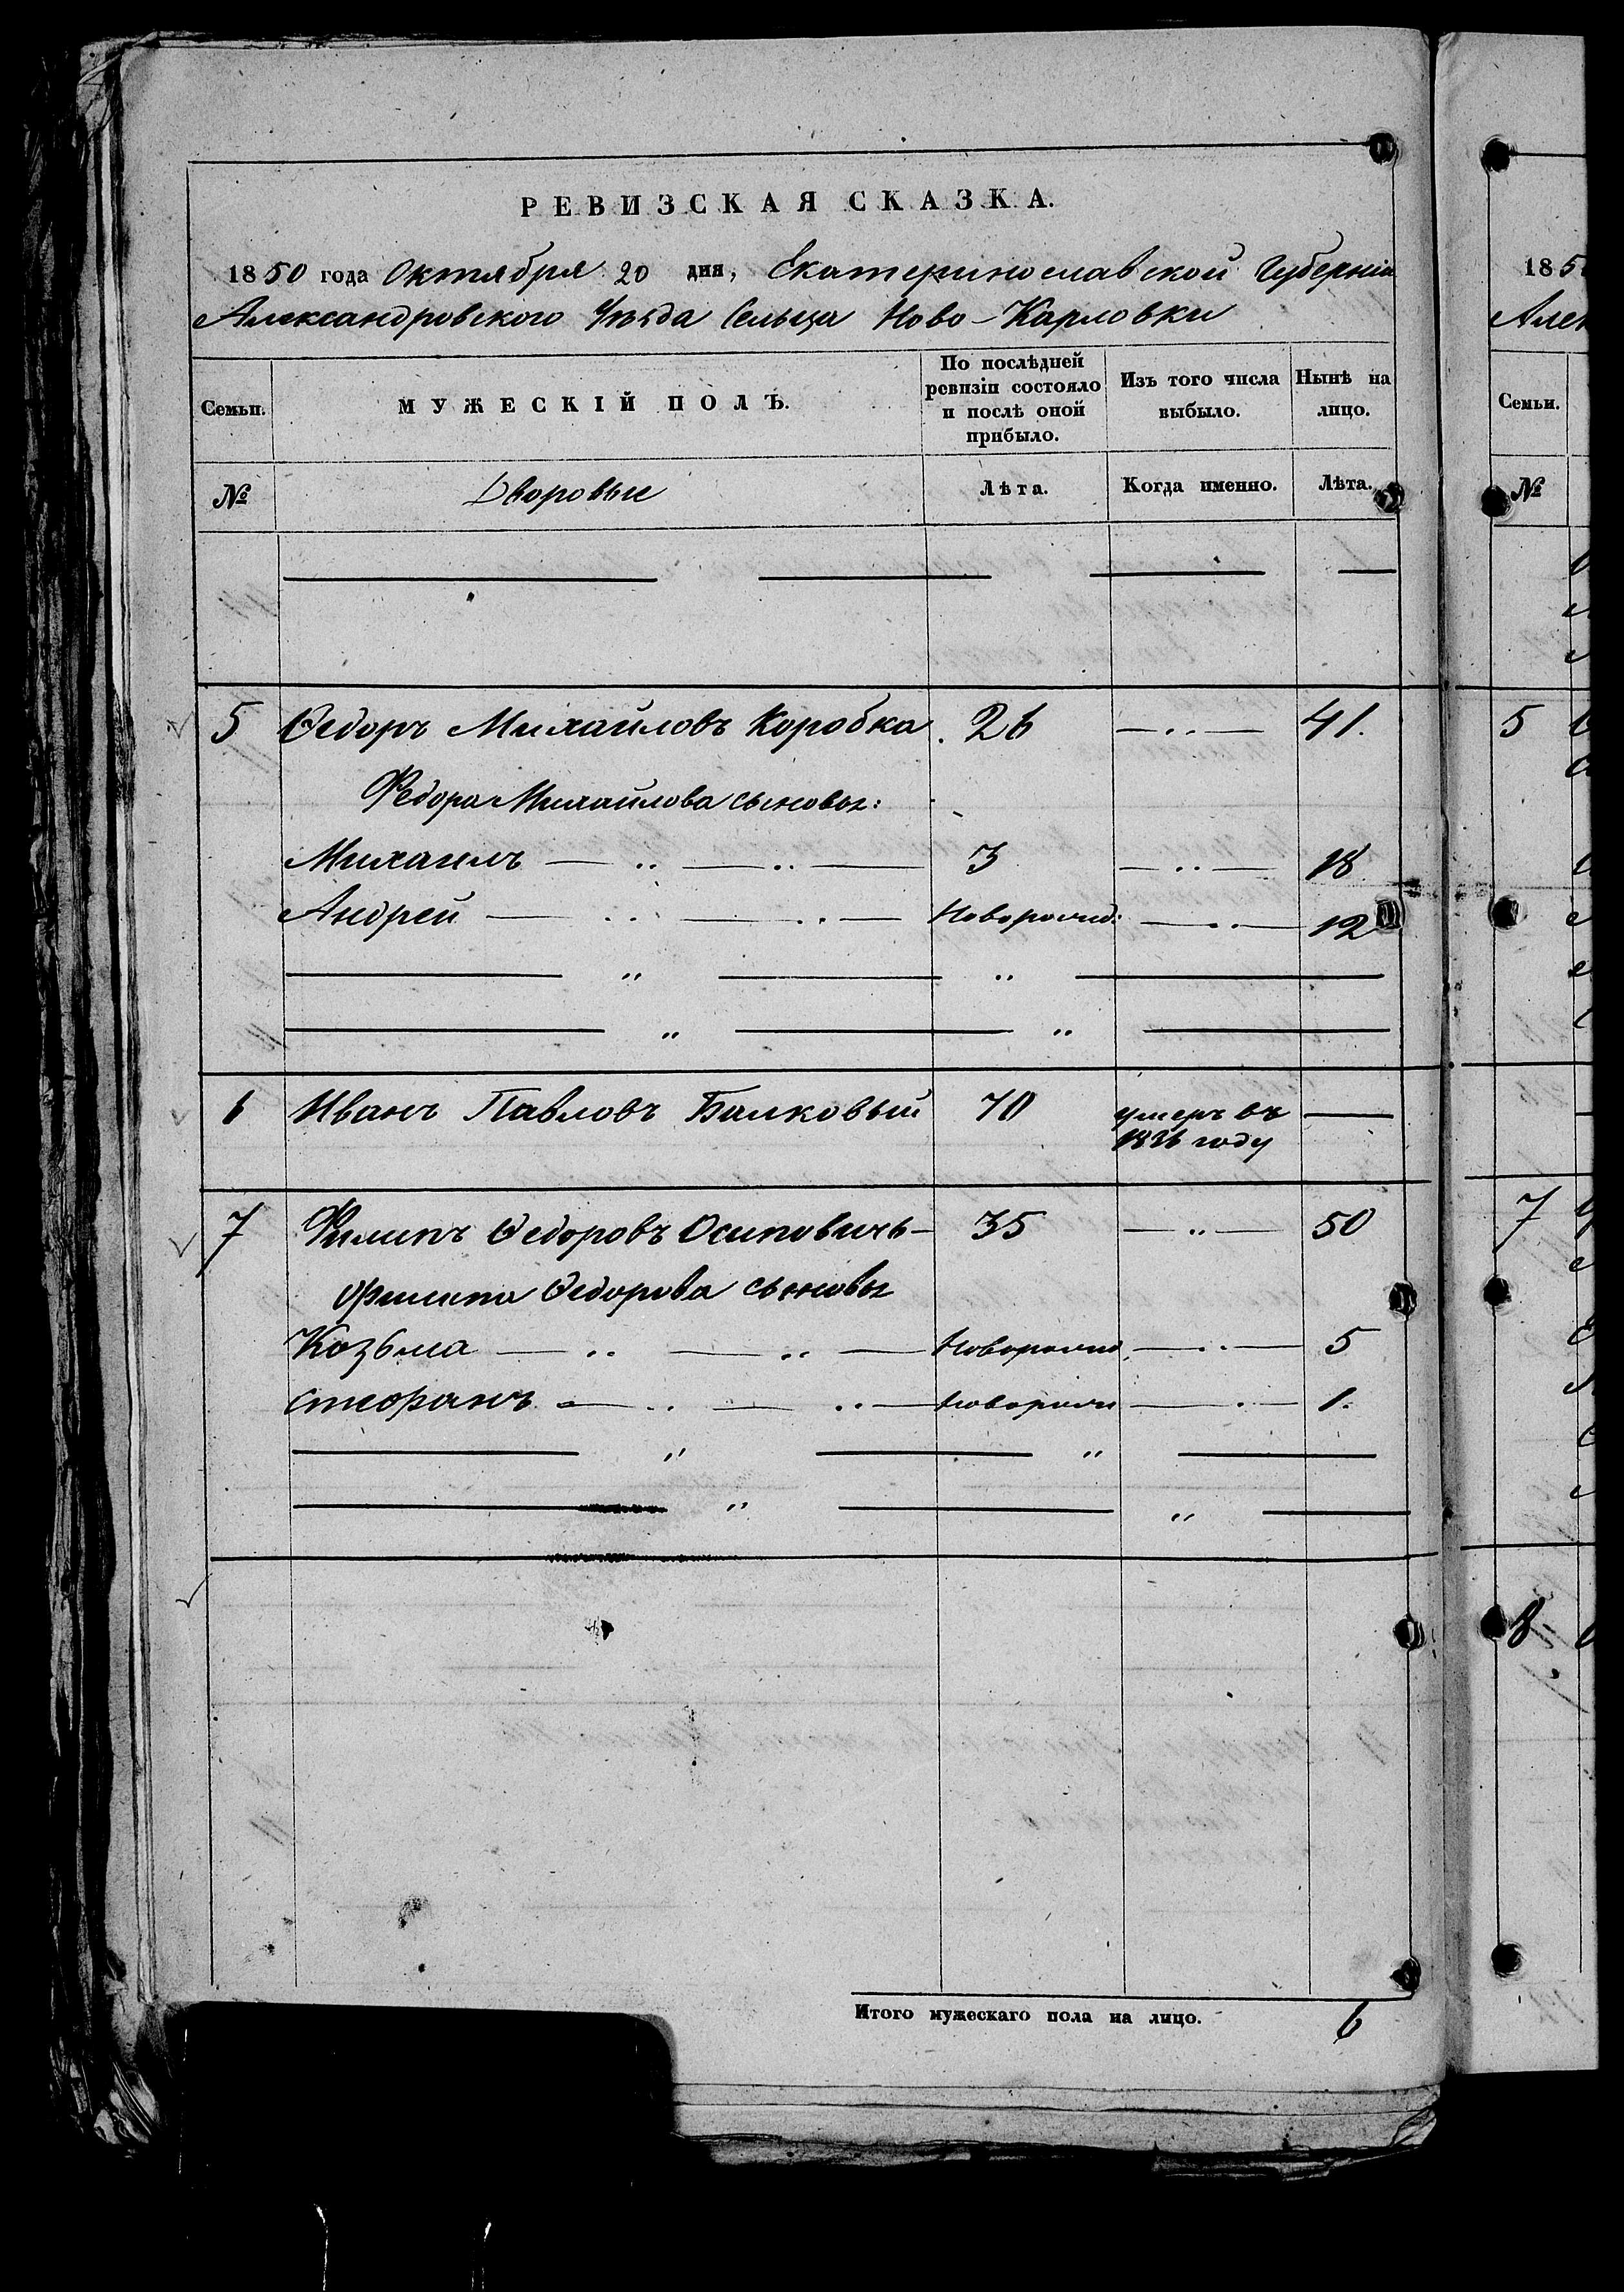 РЕВИЗСКАЯ СКАЗКА.
1850 года Октября 20 дня, Екатеринославской Губерніи
Александровского Уѣзда Сельца Ново-Карловки
Семьи.
МУЖЕСКІЙ ПОЛЪ.
По послѣдней
ревизіи состояло
и послѣ оной
прибыло.
Изъ того числа
выбыло.
Нынѣ на
лицо.
№
Дворовые
Лѣта.
Когда именно.
Лѣта.
5 Ѳедоръ Михайловъ Коробка. 26 —..— 41.
Федора Михайлова сыновья:
Михаилъ — .. — .. — 3 —..— 18
Андрей — .. — .. — Новорожд: —..— 12
— " — " —
— " — " —
6 Иванъ Павловъ Балковый 70 умеръ въ —
1836 году
7 Филипъ Ѳедоровъ Осиповичь — 35 —..— 50
Филипа Ѳедорова сыновья
Козьма — .. — .. — Новорожд. —..— 5
Стефанъ — .. — .. — Новорож — . — 1.
— " — " —
— " — " —
Итого мужескаго пола на лицо. 6
185
Алек
Семьи.
№
5
7
8